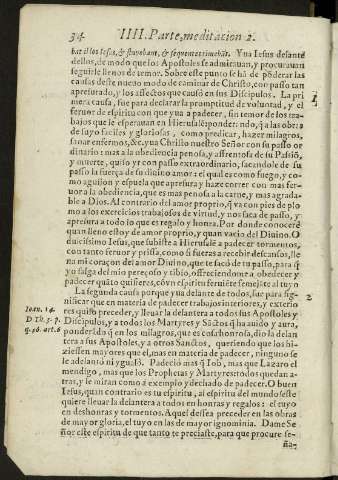 34 IIII. Parte, meditacion 2.
bat illos Iesus, & stupebant, & sequentes timebãt. Yua Iesus delante
dellos, de modo que los Apostoles se admirauan, y procurauan
seguirle llenos de temor. Sobre este punto se hã de põderar las
causas deste nueuo modo de caminar de Christo, con passo tan
apresurado, y los affectos que causò en sus Discipulos. La pri
mera causa, fue para declarar la promptitud de voluntad, y el
feruor de espiritu con que yua a padecer, sin temor de los tra-
bajos que le esperauan en Hierusalẽ:
1
de suyo faciles y gloriosas, como predicar, hazer milagros,
sanar enfermos, &c. yua Christo nuestro Señor con su passo or
dinario: mas a la obediencia penosa, y affrentosa de su Passiõ,
y muerte, quiso yr con passo extraordinario, sacandole de su
passo la fuerça de su diuino amor: el qual es como fuego, y co-
mo aguijon y espuela que apresura y haze correr con mas fer-
uor a la obediencia, que es mas penosa a la carne, y mas agrada-
ble a Dios. Al contrario del amor proprio, q̃ va con pies de plo
mo a los exercicios trabajosos de virtud, y nos saca de passo, y
apresura a todo lo que es regalo y honra. Por donde conocerè
quan lleno estoy de amor proprio, y quan vacio del Diuino. O
dulcissimo Iesus, que subiste a Hierusalẽ a padecer tormentos,
con tanto feruor y prissa, como si fueras a recebir descansos, lle
na mi coraçon del amor Diuino, que te sacò de tu passo, para q̃
yo salga del mio pereçoso y tibio, offreciendome a obedecer y
padecer quãto quisieres, cõ vn espiritu feruiẽte semejãte al tuyo
La segunda causa porque yua delante de todos, fue para sig-
2
nificar que en materia de padecer trabajos interiores, y exterio
res quiso preceder, y lleuar la delantera a todos sus Apostoles y
Ioan. 14.
D. Th. 3. p.
q. 46. art. 6
Discipulos, y a todos los Martyres y Sãctos q̃ ha auido y aura,
ponderãdo q̃ en los milagros, que es cosa honrosa, dio la delan
tera a sus Apostoles, y a otros Sanctos, queriendo que los hi-
ziessen mayores que el, mas en materia de padecer, ninguno se
le adelantò ni ygualò. Padeciò mas q̃ Iob, mas que Lazaro el
mendigo, mas que los Prophetas y Martyres: todos quedan a-
tras, y le miran como a exemplo y dechado de padecer. O buen
Iesus, quan contrario es tu espiritu, al espiritu del mundo: este
quiere lleuar la delantera a todos en honras y regalos: el tuyo
en deshonras y tormentos. Aquel dessea preceder en las obras
de mayor gloria, el tuyo en las de mayor ignominia. Dame Se
ñor este espiritu de que tanto te preciaste, para que procure se-
ña-